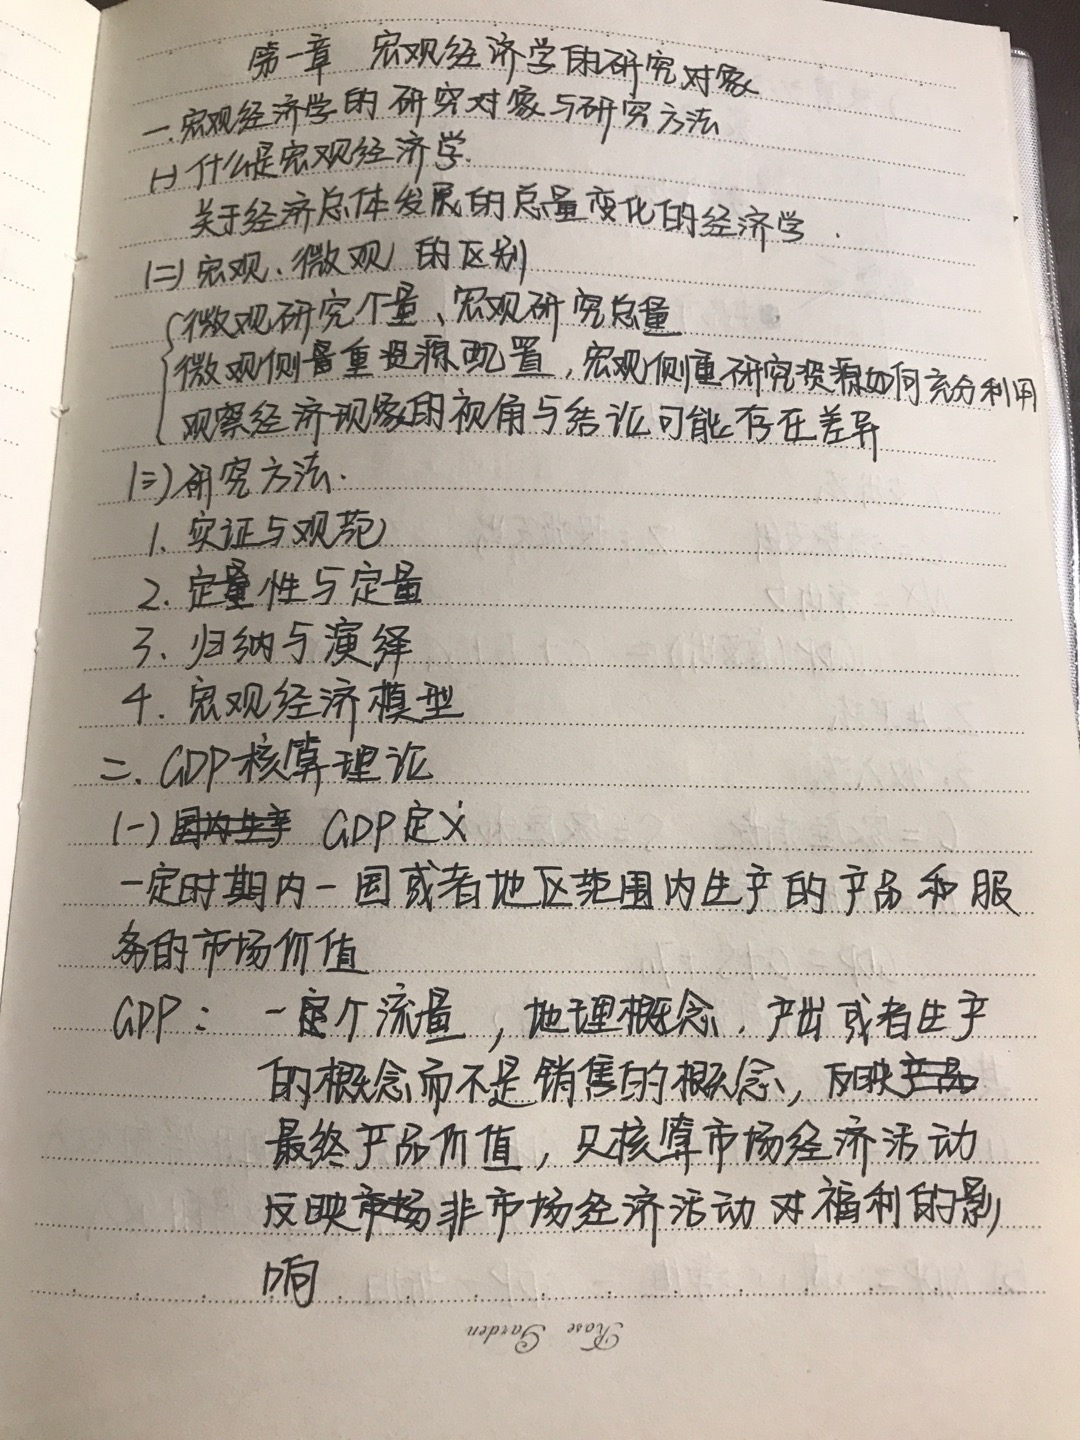 第一章 宏观经济学的研究对象
一.宏观经济学的研究对象与研究方法
(一)什么是宏观经济学.
关于经济总体发展的总量变化的经济学.
(二)宏观、微观的区别
微观研究个量、宏观研究总量
微观侧重资源配置,宏观侧重研究资源如何充分利用
观察经济现象的视角与结论可能存在差异
(三)研究方法.
1. 实证与观范
2. 定性与定量
3. 归纳与演绎
4. 宏观经济模型
二. GDP核算理论
(一) GDP定义
一定时期内一国或者地区范围内生产的产品和服
务的市场价值
GDP: 一个流量,地理概念.产出或者生产
的概念而不是销售的概念,反映
最终产品价值,只核算市场经济活动
反映非市场经济活动对福利的影
响
Rose Garden